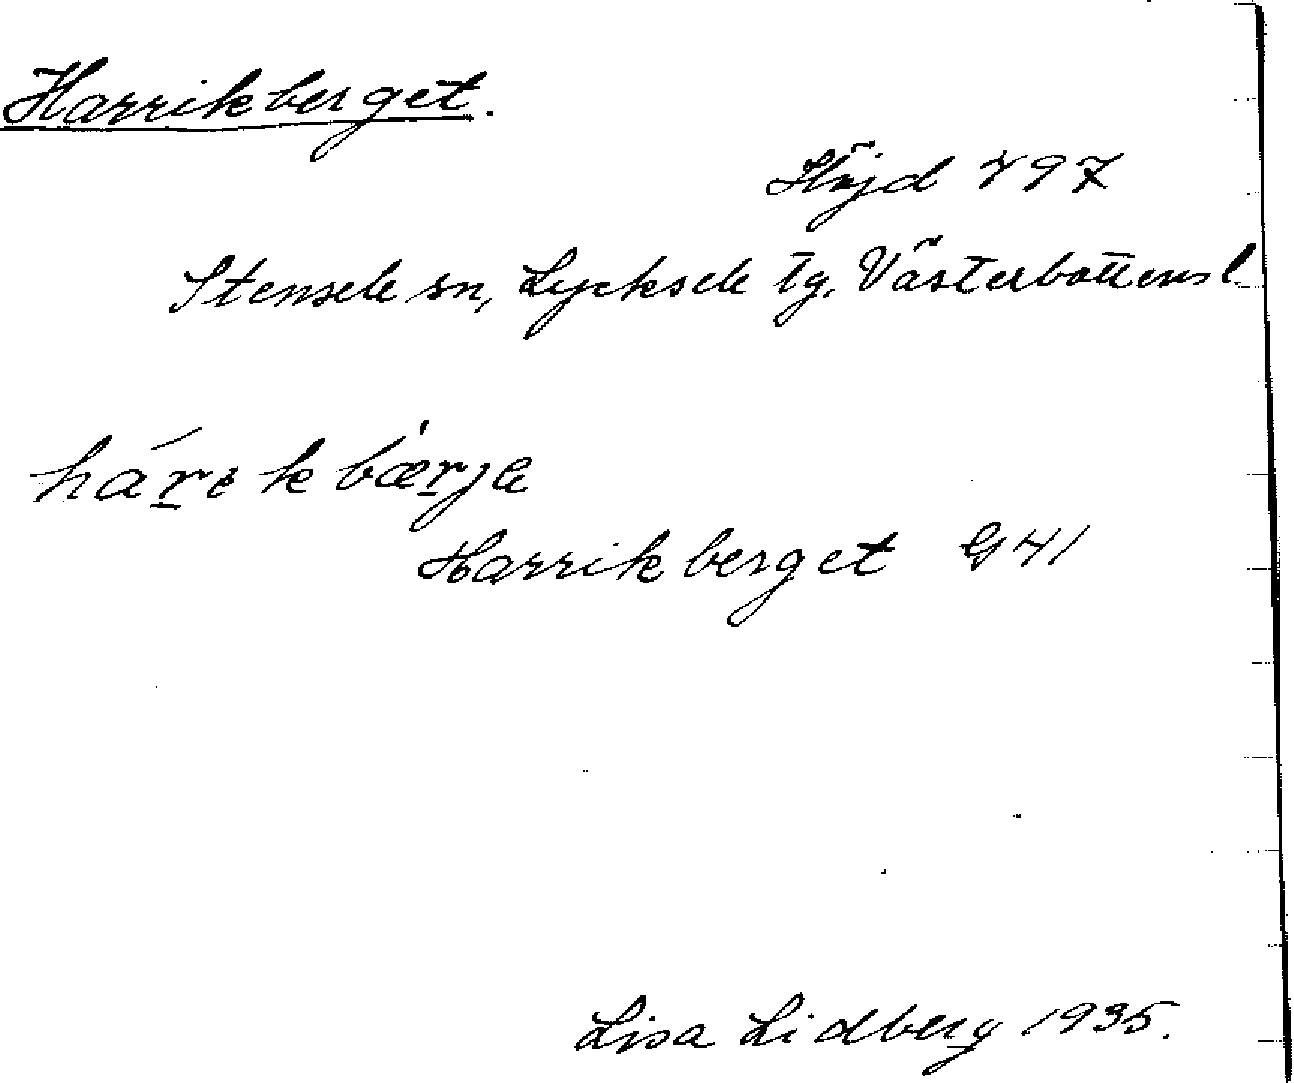 Harrikberget.
Höjd 497
Stensele sn, Lycksele tg. Västerbottens l.
hárekbærja
Harrikberget G41
Lisa Lidberg 1935.